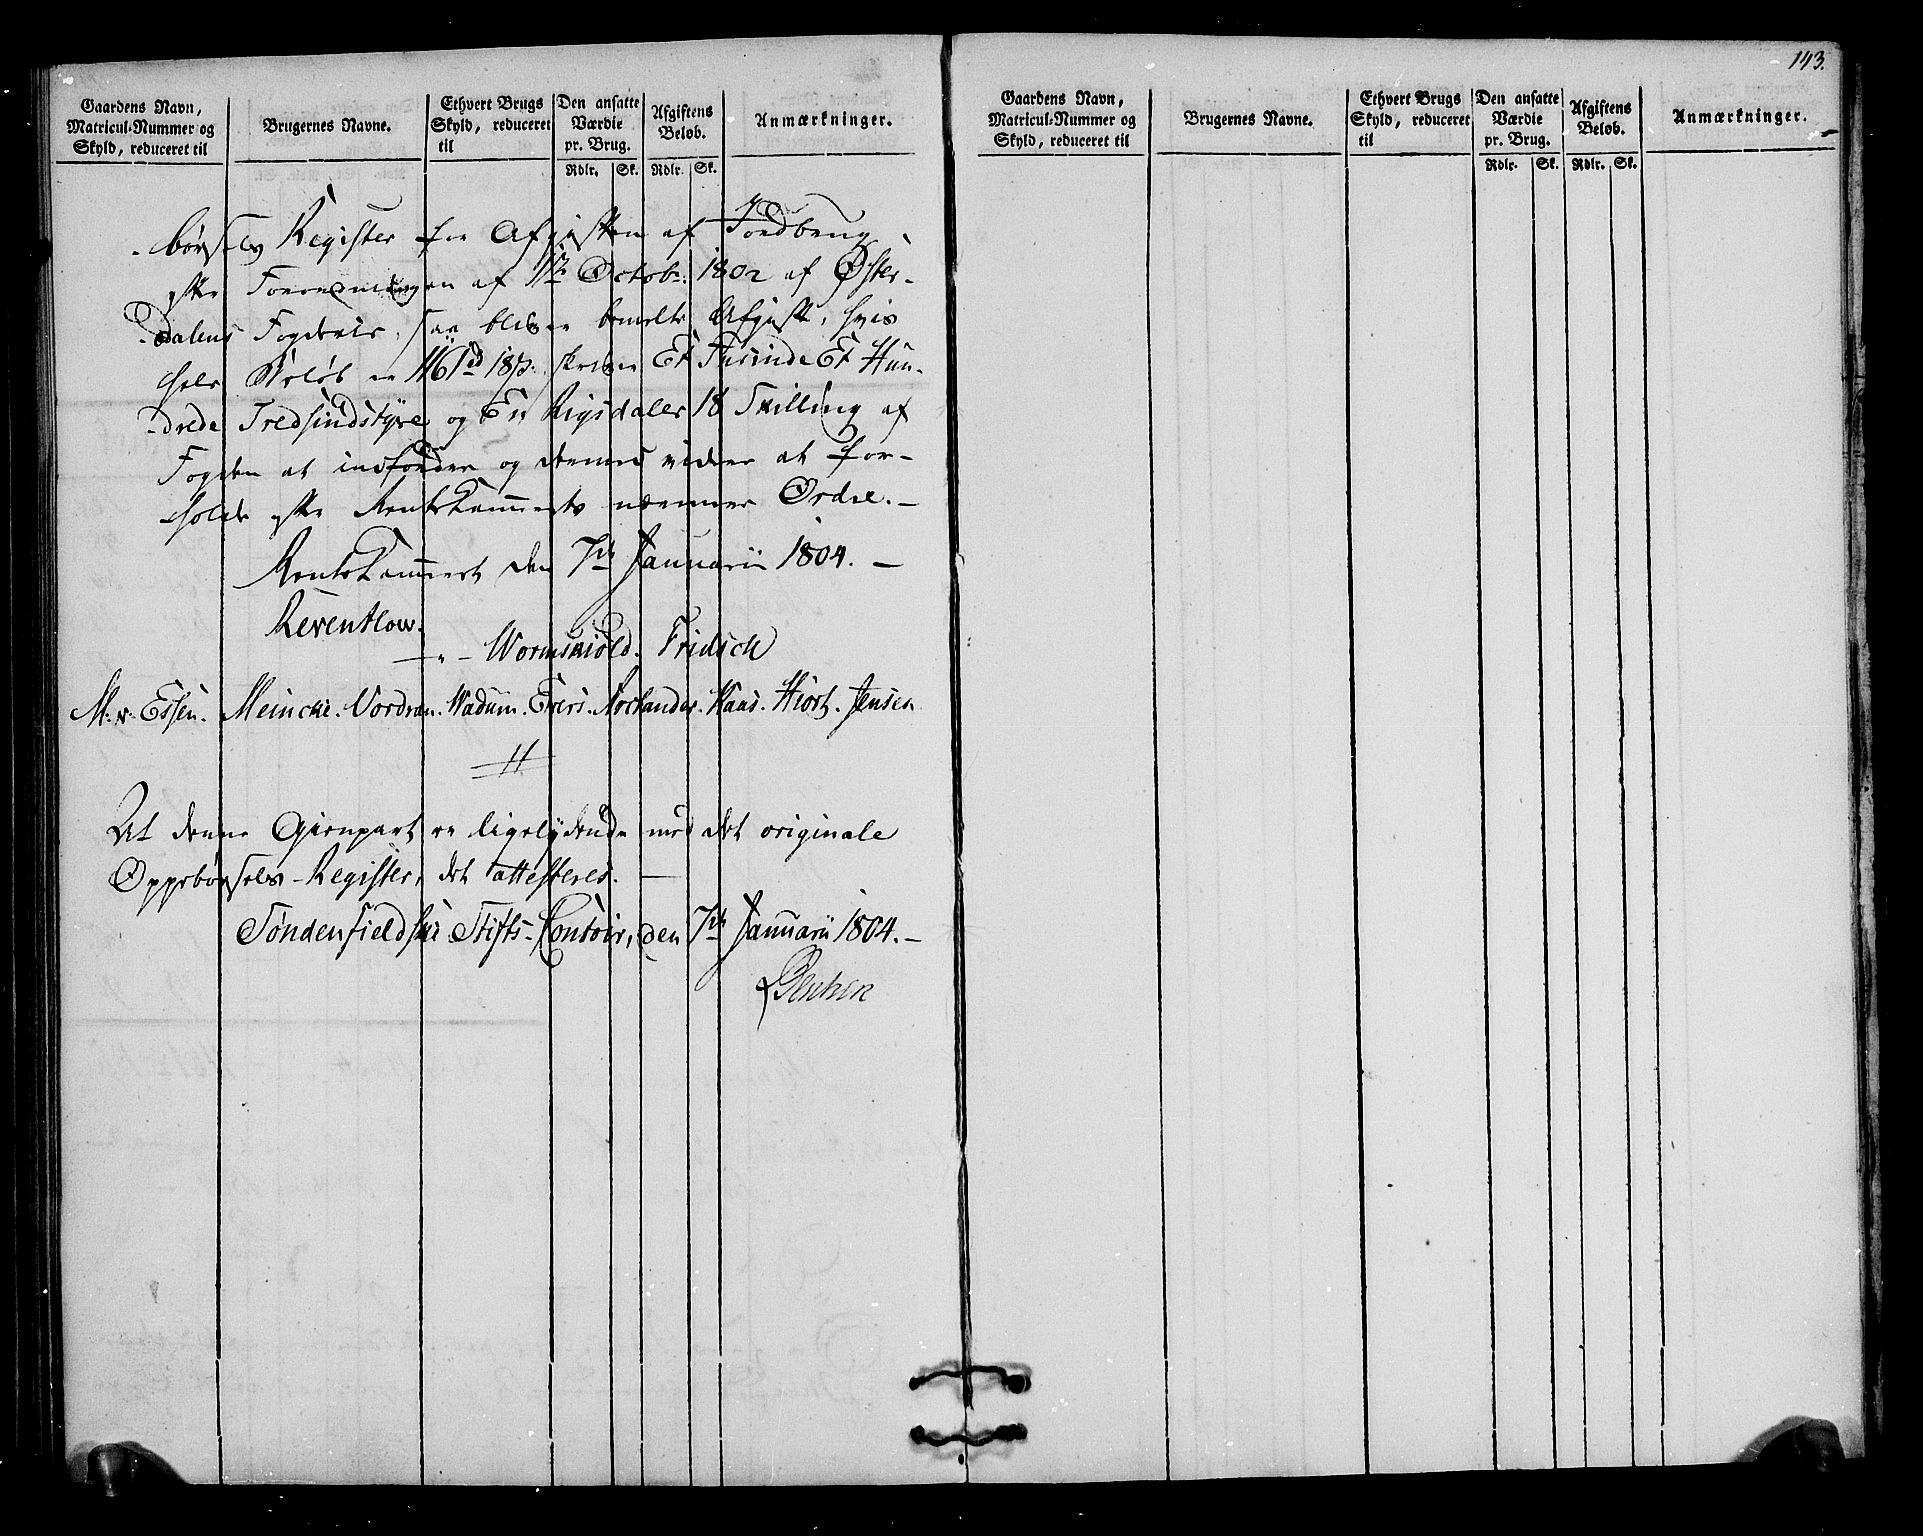 143.
Gaardens Navn, Matricul-Nummer og Skyld, reduceret til
Brugernes Navne.
Ethvert Brugs Skyld, reduceret til
Den ansatte Værdie pr. Brug.
Rdlr. Sk.
Afgiftens Beløb.
Rdlr. Sk.
Anmærkninger.
børsels Register for Afgiften af Jordbrug
efter Forordningen af 1te Octobr: 1802 af Øster-
dalens Fogderie, saa bliver bemelte Afgift, hvis
hele Beløb er 1161 rd 18 s: skriver Et Tusinde Et Hun-
drede Tredsindstyve og En Rigsdaler 18 Skilling af
Fogden at indfordre og dermed videre at for-
holde efter Rentekammerets nærmere Ordre. –
Rentekammeret den 7de Januarii 1804. –
Reventlow.
– " – Wormskiold. Fridsch
M. v. Essen. Meincke. Vordran. Wadum. Evers. Norlander. Kaas. Hiort. Jensen
At denne Gienpart er ligelydende med det originale
Oppebørsels-Register, det attesteres. –
Søndenfieldske Stifts-Contoir, den 7de Januarii 1804. –
Gaardens Navn, Matricul-Nummer og Skyld, reduceret til
Brugernes Navne.
Ethvert Brugs Skyld, reduceret til
Den ansatte Værdie pr. Brug.
Rdlr. Sk.
Afgiftens Beløb.
Rdlr. Sk.
Anmærkninger.